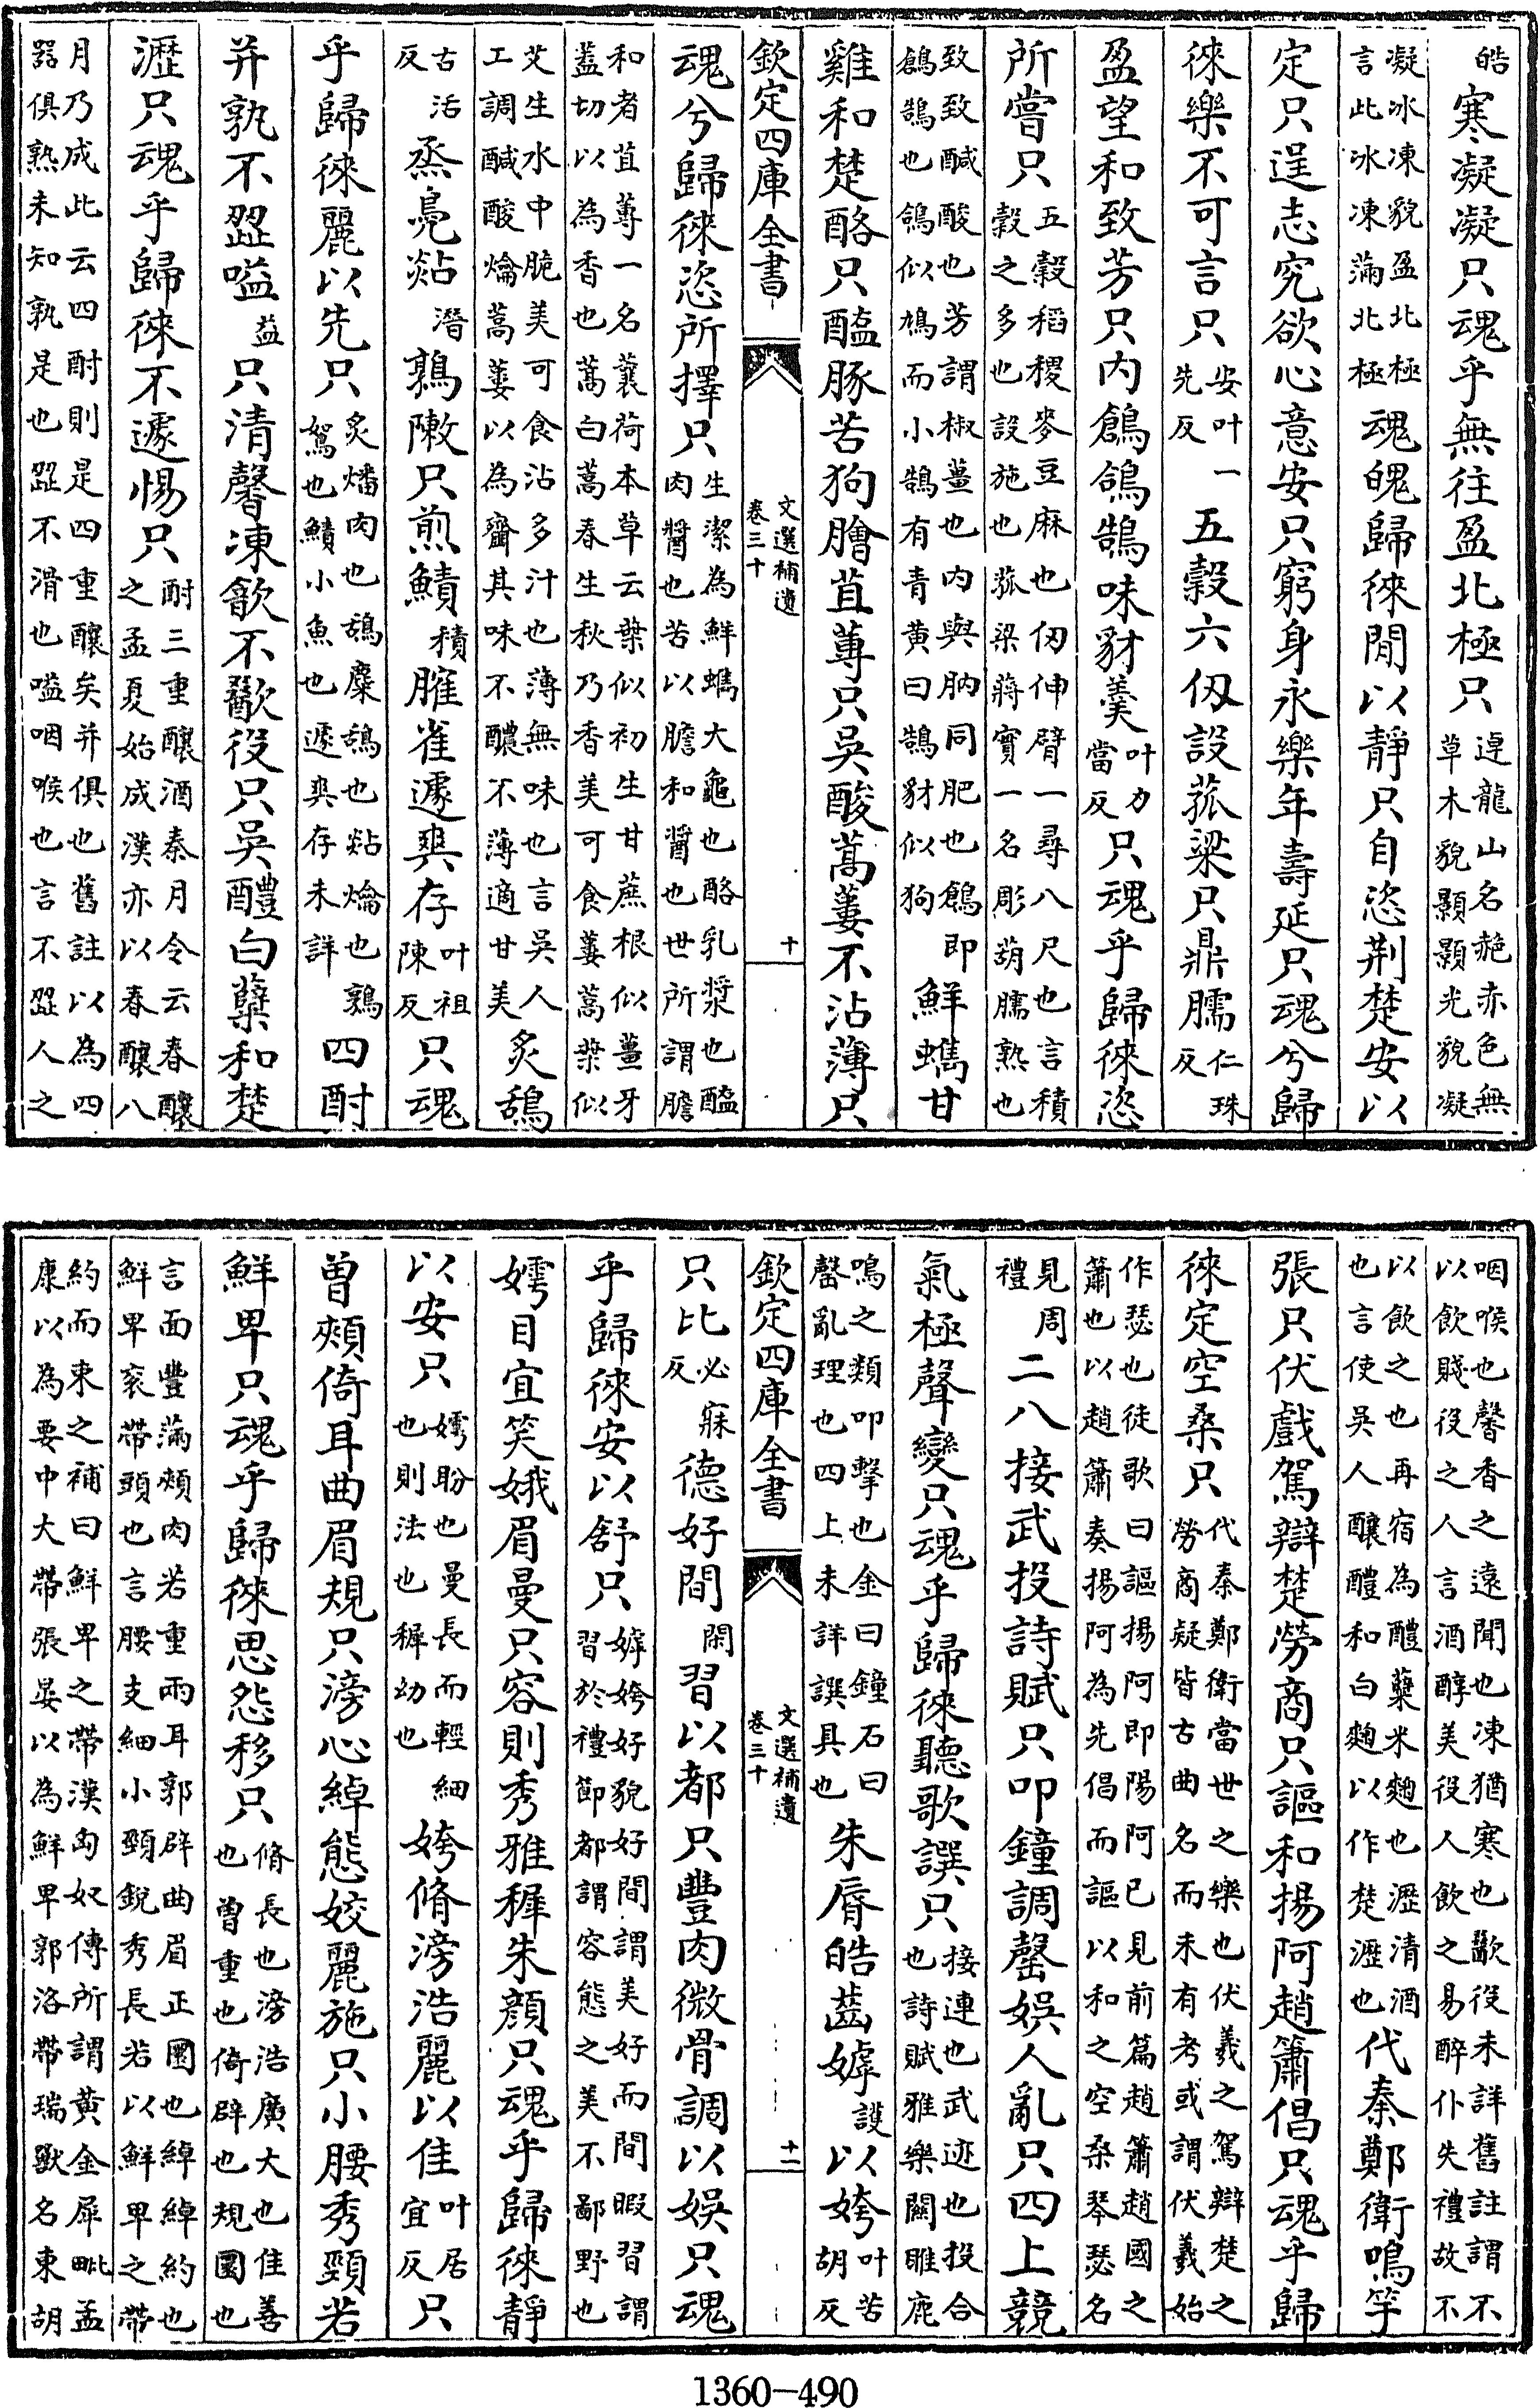 皓寒凝凝只魂乎無往盈北極只逴龍山名赩赤色無草木貌顥顥光貌凝
凝冰凍貌盈北極言此冰凍滿北極魂魄歸徠閒以靜只自恣荆楚安以
定只逞志究欲心意安只窮身永樂年壽延只魂兮歸
徠樂不可言只安叶一先反五穀六仞設菰粱只鼎臑仁珠反
盈望和致芳只內鶬鴿鵠味豺羹叶力當反只魂乎歸徠恣
所嘗只五穀稻稷麥豆麻也仞伸臂一尋八尺也言積穀之多也設施也菰粱蔣實一名彫葫臑熟也
致致鹹酸也芳謂椒薑也內與肭同肥也鶬即鶬鵠也鴿似鳩而小鵠有青黄曰鵠豺似狗鮮蠵甘
雞和楚酪只醢豚苦狗膾苴蓴只吳酸蒿蔞不沾薄只
欽定四庫全書 文選補遺卷三十 十
魂兮歸徠恣所擇只生潔為鮮蠵大龜也酪乳漿也醢肉醬也苦以膽和醬也世所謂膽
和者苴蓴一名蘘荷本草云葉似初生甘蔗根似薑牙葢切以為香也蒿白蒿春生秋乃香美可食蔞蒿葉似
艾生水中脆美可食沾多汁也薄無味也言吳人工調鹹酸爚蒿蔞以為齏其味不醲不薄適甘美炙鴰
古活反烝鳧㷎潛鶉敶只煎鰿積臛雀遽爽存叶祖陳反只魂
乎歸徠麗以先只炙燔肉也鴰麋鴰也㷎爚也鶉鴽也鰿小魚也遽爽存未詳四酎
并孰不歰嗌益只清馨凍㱃不歠役只吳醴白糵和楚
瀝只魂乎歸徠不遽惕只酎三重釀酒秦月令云春釀之孟夏始成漢亦以春釀八
月乃成此云四酎則是四重釀矣并俱也舊註以為四器俱熟未知孰是也歰不滑也嗌咽喉也言不歰人之
咽喉也馨香之遠聞也凍猶寒也歠役未詳舊註謂不以飲賤役之人言酒醇美役人飲之易醉仆失禮故不
以飲之也再宿為醴糵米麴也瀝清酒也言使吳人釀醴和白麴以作楚瀝也代秦鄭衛鳴竽
張只伏戲駕辯楚勞商只謳和揚阿趙簫倡只魂乎歸
徠定空桑只代秦鄭衛當世之樂也伏羲之駕辯楚之勞商疑皆古曲名而未有考或謂伏羲始
作瑟也徒歌曰謳揚阿即陽阿已見前篇趙簫趙國之簫也以趙簫奏揚阿為先倡而謳以和之空桑琴瑟名
見周禮二八接武投詩賦只叩鐘調磬娛人亂只四上競
氣極聲變只魂乎歸徠聽歌譔只接連也武迹也投合也詩賦雅樂關雎鹿
鳴之類叩擊也金曰鐘石曰磬亂理也四上未詳譔具也朱脣皓齒嫭護以姱叶苦胡反
欽定四庫全書 文選補遺卷三十 十一
只比必寐反德好閒閑習以都只豐肉微骨調以娛只魂
乎歸徠安以舒只嫭姱好貌好閒謂美好而閒暇習謂習於禮節都謂容態之美不鄙野也
嫮目宜笑娥眉曼只容則秀雅穉朱顏只魂乎歸徠靜
以安只嫮盼也曼長而輕細也則法也穉幼也姱脩滂浩麗以佳叶居宜反只
曾頰倚耳曲眉規只滂心綽態姣麗施只小腰秀頸若
鮮卑只魂乎歸徠思怨移只脩長也滂浩廣大也佳善也曾重也倚辟也規圜也
言面豐滿頰肉若重兩耳郭辟曲眉正圜也綽綽約也鮮卑衮帶頭也言腰支細小頸銳秀長若以鮮卑之帶
約而束之補曰鮮卑之帶漢匈奴傳所謂黃金犀毗孟康以為要中大帶張晏以為鮮卑郭洛帶瑞獸名東胡
1360-490